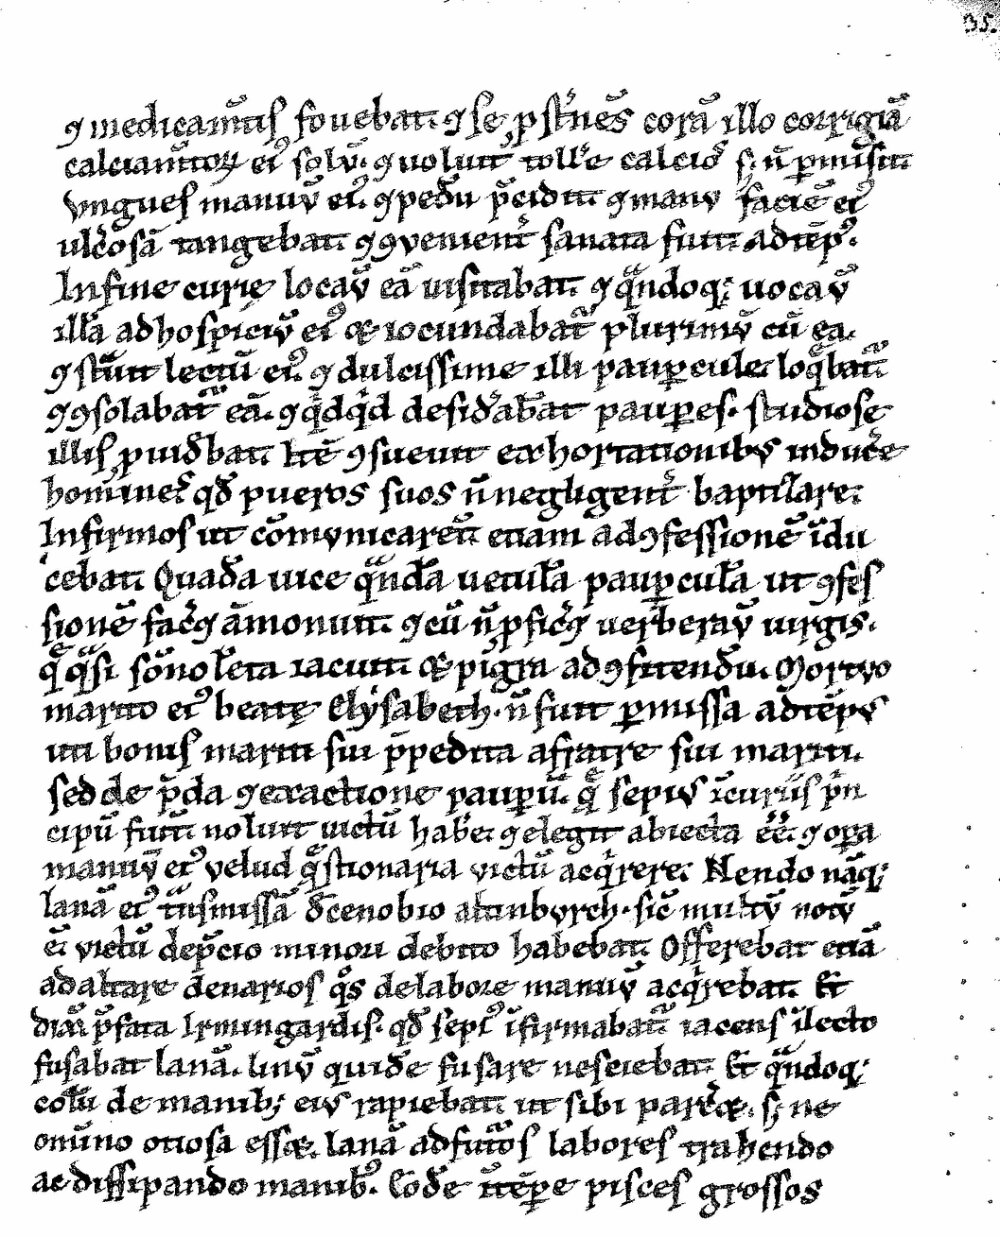 35.
⁊ medicam̄tis fouebat. ⁊ se ꝓst̾nēs corā illo corrigiā
calciam̄toꝝ ei᷒ soluı̄. ⁊ uoluit toll'e calcios s; n̄ ꝑmisit.
vngues manuū ei᷒. ⁊ pedū p̄cidit ⁊ manu faciē ei᷒
ulc̾osā tangebat. ⁊ ꝯuenient̾ sanata fuit ad tēp᷒.
In fine curię locaū eā uisitabat. ⁊ qͣndoq; uocaū
illā ad hospiciū ei᷒ ⁊ iocundabat᷑ plurimū cū ea.
⁊ st̾uit lectū ei᷒. ⁊ dulcissime illi pauꝑcule loq̄bat᷑
⁊ ꝯsolabat᷑ eā. ⁊ qͥdqͥd desid̾abat pauꝑes. studiose
illis ꝓuid̾bat. Itē ꝯsueuit exhortationibus induc̾e
homines qd̄ pueros suos n̄ negligent̾ baptizare.
Infirmos ut cōmunicarēt etiam ad ꝯfessionē īdu
cebat. Quadā uice qͣndā uetulā pauꝑculā ut ꝯfes
sionē fac̾et āmonuit. ⁊ cū n̄ ꝓfic̾et uerberaū uirgis.
q̄ qͣsi sōnolēta iacuit. ⁊ pigra ad ꝯfitendū. Mortuo
marito ei᷒ beatę Elysabeth. n̄ fuit ꝑmissa ad tēpus
uti bonis mariti sui p̄pedita a fratre sui mariti.
sed de p̄da ⁊ exactione pauꝑū. q̄ sepius ī curiis pͥn
cipū fuit. noluit uictū hab̾e. ⁊ elegit abiecta ēē. ⁊ oꝑa
manuū ei᷒ velud q̄stionaria victū acqͥrere. Nendo nāq;
lanā ei᷒ tͣnsmissā d̄ cenobio altinburch. sic̄ multū notū
ē. victū de p̄cio minori debito habebat. Offerebat etiā
ad altare denarios qͦs de labore manuū acqͥrebat. Et
dixͭ p̄fata Irmingardis. qd̄ sepi᷒ īfirmabat᷑ iacens ī lecto
fusabat lanā. linū quide fusare nesciebat. Et qͣndoq;
colū de manib; eius rapiebat. ut sibi parc̾et. s; ne
omnı̄no otiosa esset. lanā ad fut̾os labores trahendo
ac dissipando manib᷒. Eodē tēpe pisces grossos